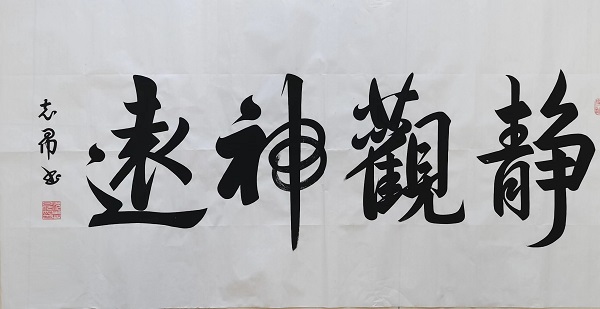 静觀神遠
志昂书